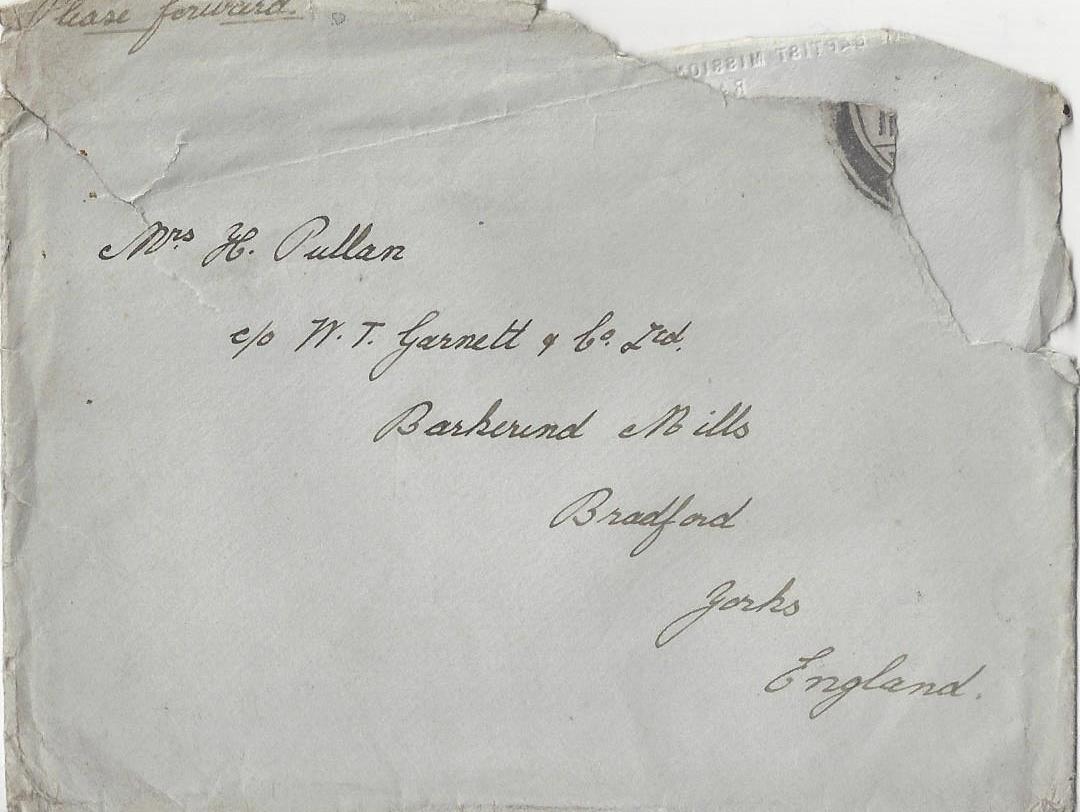 Please forward.
BAPTIST MISSION
Mrs. H. Pullan
c/o W. T. Garnett & Co. Ltd.
Barkerend Mills
Bradford
Yorks
England.